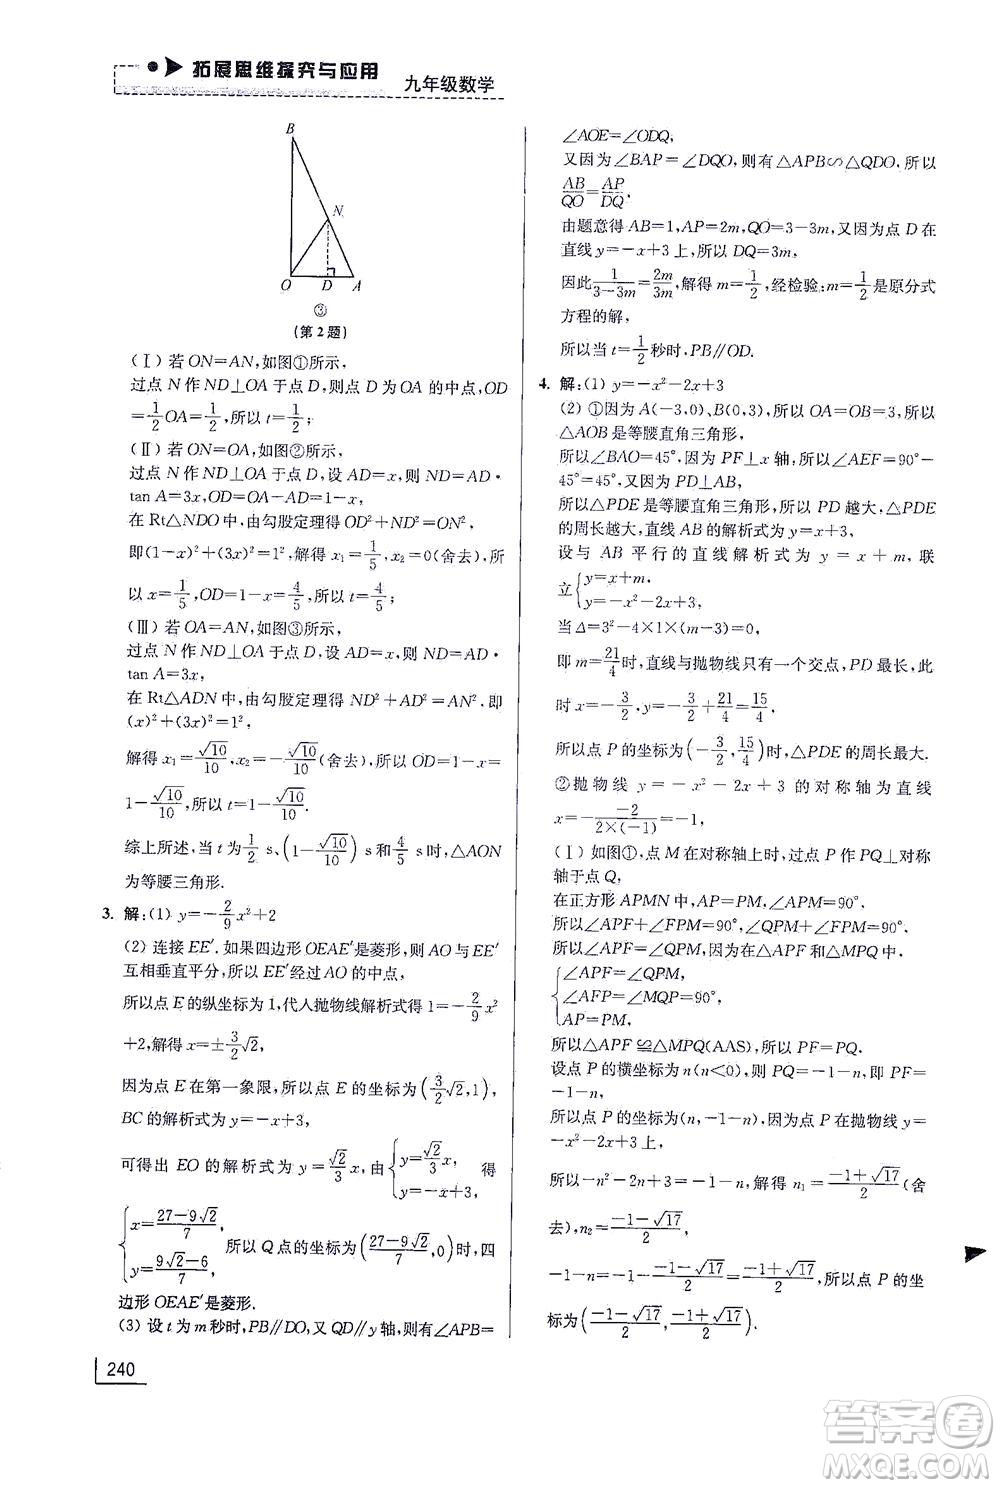 拓展思维探究与应用
九年级数学
B
N
O D A
③
(第2题)
(Ⅰ) 若 ON=AN,如图①所示,
过点 N 作 ND⊥OA 于点 D,则点 D 为 OA 的中点,OD
=1/2 OA=1/2,所以 t=1/2;
(Ⅱ) 若 ON=OA,如图②所示,
过点 N 作 ND⊥OA 于点 D,设 AD=x,则 ND=AD·
tan A=3x,OD=OA-AD=1-x,
在 Rt△NDO 中,由勾股定理得 OD²+ND²=ON²,
即(1-x)²+(3x)²=1²,解得 x₁=1/5,x₂=0(舍去),所
以 x=1/5,OD=1-x=4/5,所以 t=4/5;
(Ⅲ) 若 OA=AN,如图③所示,
过点 N 作 ND⊥OA 于点 D,设 AD=x,则 ND=AD·
tan A=3x,
在 Rt△ADN 中,由勾股定理得 ND²+AD²=AN²,即
(x)²+(3x)²=1²,
解得 x₁=√10/10,x₂=-√10/10(舍去),所以 OD=1-x=
1-√10/10,所以 t=1-√10/10.
综上所述,当 t 为 1/2 s、(1-√10/10) s和 4/5 s时,△AON
为等腰三角形.
3. 解:(1) y=-2/9 x²+2
(2) 连接 EE′.如果四边形 OEAE′是菱形,则 AO 与 EE′
互相垂直平分,所以 EE′经过 AO 的中点,
所以点 E 的纵坐标为 1,代入抛物线解析式得 1=-2/9 x²
+2,解得 x=±3/2 √2,
因为点 E 在第一象限,所以点 E 的坐标为(3/2 √2,1),
BC 的解析式为 y=-x+3,
可得出 EO 的解析式为 y=√2/3 x,由{y=√2/3 x, y=-x+3, 得
{x=(27-9√2)/7, y=(9√2-6)/7, 所以 Q 点的坐标为((27-9√2)/7,0)时,四
边形 OEAE′是菱形.
(3) 设 t 为 m 秒时,PB∥DO,又 QD∥y 轴,则有∠APB=
∠AOE=∠ODQ,
又因为∠BAP=∠DQO,则有△APB∽△QDO,所以
AB/QO=AP/DQ.
由题意得 AB=1,AP=2m,QO=3-3m,又因为点 D 在
直线 y=-x+3 上,所以 DQ=3m,
因此 1/(3-3m)=2m/3m,解得 m=1/2,经检验:m=1/2 是原分式
方程的解,
所以当 t=1/2 秒时,PB∥OD.
4. 解:(1) y=-x²-2x+3
(2) ①因为 A(-3,0)、B(0,3),所以 OA=OB=3,所以
△AOB 是等腰直角三角形,
所以∠BAO=45°,因为 PF⊥x 轴,所以∠AEF=90°-
45°=45°,又因为 PD⊥AB,
所以△PDE 是等腰直角三角形,所以 PD 越大,△PDE
的周长越大,直线 AB 的解析式为 y=x+3,
设与 AB 平行的直线解析式为 y=x+m,联
立{y=x+m, y=-x²-2x+3,
当 Δ=3²-4×1×(m-3)=0,
即 m=21/4时,直线与抛物线只有一个交点,PD 最长,此
时 x=-3/2,y=-3/2+21/4=15/4,
所以点 P 的坐标为(-3/2,15/4)时,△PDE 的周长最大.
②抛物线 y=-x²-2x+3 的对称轴为直线
x=--2/(2×(-1))=-1,
(Ⅰ) 如图①,点 M 在对称轴上时,过点 P 作 PQ⊥对称
轴于点 Q,
在正方形 APMN 中,AP=PM,∠APM=90°,
所以∠APF+∠FPM=90°,∠QPM+∠FPM=90°,
所以∠APF=∠QPM,因为在△APF 和△MPQ 中,
{∠APF=∠QPM,
∠AFP=∠MQP=90°,
AP=PM,
所以△APF≌△MPQ(AAS),所以 PF=PQ.
设点 P 的横坐标为 n(n<0),则 PQ=-1-n,即 PF=
-1-n,
所以点 P 的坐标为(n,-1-n),因为点 P 在抛物线 y=
-x²-2x+3 上,
所以-n²-2n+3=-1-n,解得 n₁=(-1+√17)/2(舍
去),n₂=(-1-√17)/2,
-1-n=-1-(-1-√17)/2=(-1+√17)/2,所以点 P 的坐
标为((-1-√17)/2,(-1+√17)/2).
240
答案圈
MXQE.COM